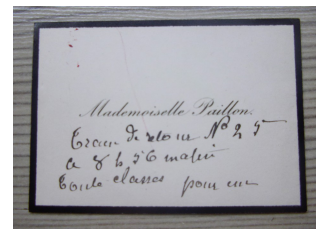 Mademoiselle Paillon.
Train de retour N° 25
a 8 h 56 matin
toute classes pour une